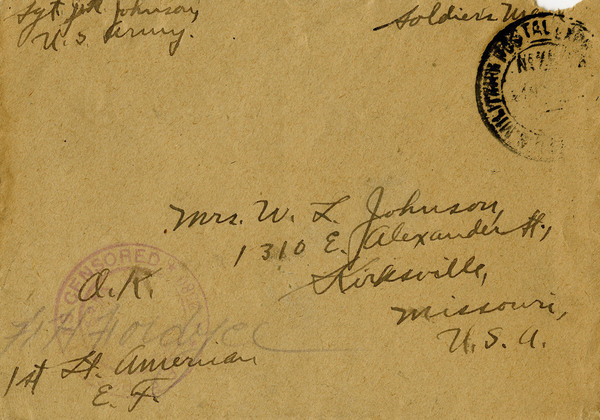 Sgt. J.R. Johnson,
U.S. Army.
Soldier's
MILITARY POSTAL EXPRESS
Mrs. W. L. Johnson,
1310 E. Alexander St.,
Kirksville,
Missouri,
U.S.A.
CENSORED
O.K.
1st Lt. American
E. F.